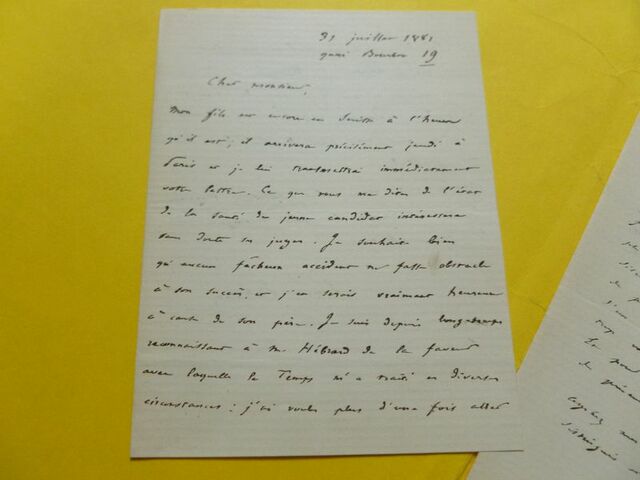 31 juillet 1881
quai Bourbon 19
Cher monsieur,
Mon fils est encore en Suisse à l'heure
qu'il est ; il arrivera précisément jeudi à
Paris et je lui transmettrai immédiatement
votre lettre. Ce que vous me dites de l'état
de la santé du jeune candidat intéressera
sans doute ses juges. Je souhaite bien
qu'aucun fâcheux accident ne fasse obstacle
à son succès, et j'en serois vraiment heureux
à cause de son père. Je suis depuis longtemps
reconnaissant à M. Hébrard de la faveur
avec laquelle le Temps m'a traité en diverses
circonstances : j'ai voulu plus d'une fois aller